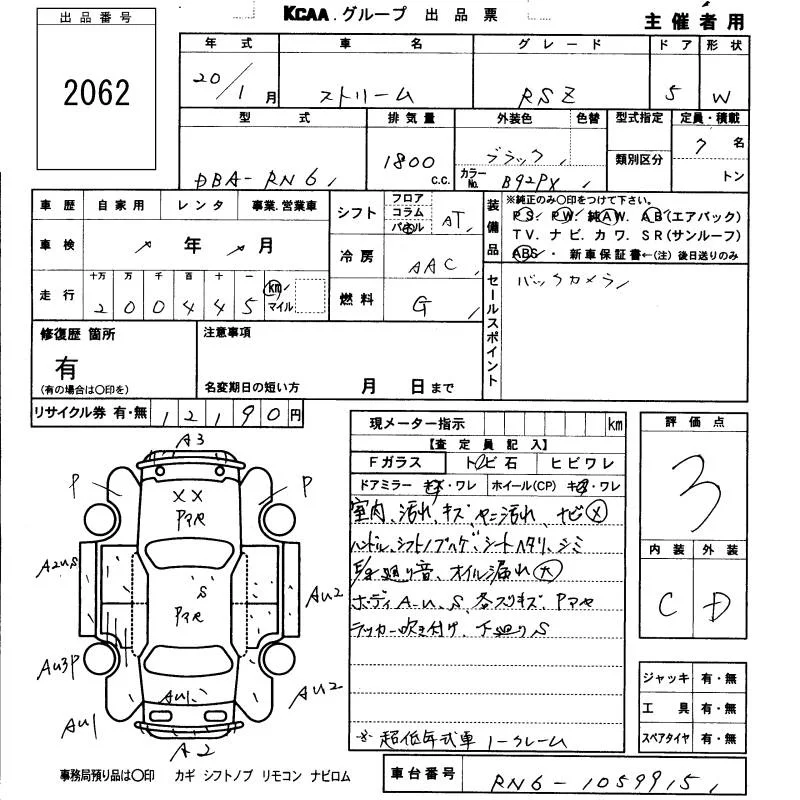 KCAA.グループ 出品票
主催者用
出品番号
2062
年式 車名 グレード ドア 形状
20/1月 ストリーム RSZ 5 W
型式 排気量 外装色 色替 型式指定 定員・積載
DBA-RN6 1800 c.c. ブラック 7名
類別区分
カラーNo. B92PX トン
車歴 自家用 レンタ 事業.営業車
シフト フロア コラム パネル AT
装備品
※純正のみ〇印をつけて下さい。
PS. PW. 純AW. AB(エアバック)
TV. ナビ. カワ. SR(サンルーフ)
ABS・ 新車保証書←(注)後日送りのみ
車検 年 月
冷房 AAC
走行 十万 万 千 百 十 一
200445 km マイル
燃料 G
セールスポイント
バックカメラ
修復歴 箇所
有
(有の場合は〇印を)
注意事項
名変期日の短い方 月 日まで
リサイクル券 有・無 12190円
現メーター指示 km
【査定員記入】
Fガラス トビ石 ヒビワレ
ドアミラー キズ・ワレ ホイール(CP) キズ・ワレ
室内、汚れ、キズ、ヤニ汚れ ナビ
ハンドル、シフトノブハゲ、シートヘタリ、シミ
廻り音、オイル漏れ 大
ボディA-U、S、各スリキズ、Pマヤ
ラッカー吹き付け、下廻りS
※超低年式車 ノークレーム
評価点
3
内装 外装
C D
A3
P P
XX
Pマヤ
A2US
S
AU2
Pマヤ
AU3P
AU2
AU1
AU1
A2
ジャッキ 有・無
工具 有・無
スペアタイヤ 有・無
事務局預り品は〇印 カギ シフトノブ リモコン ナビロム
車台番号 RN6-1059915